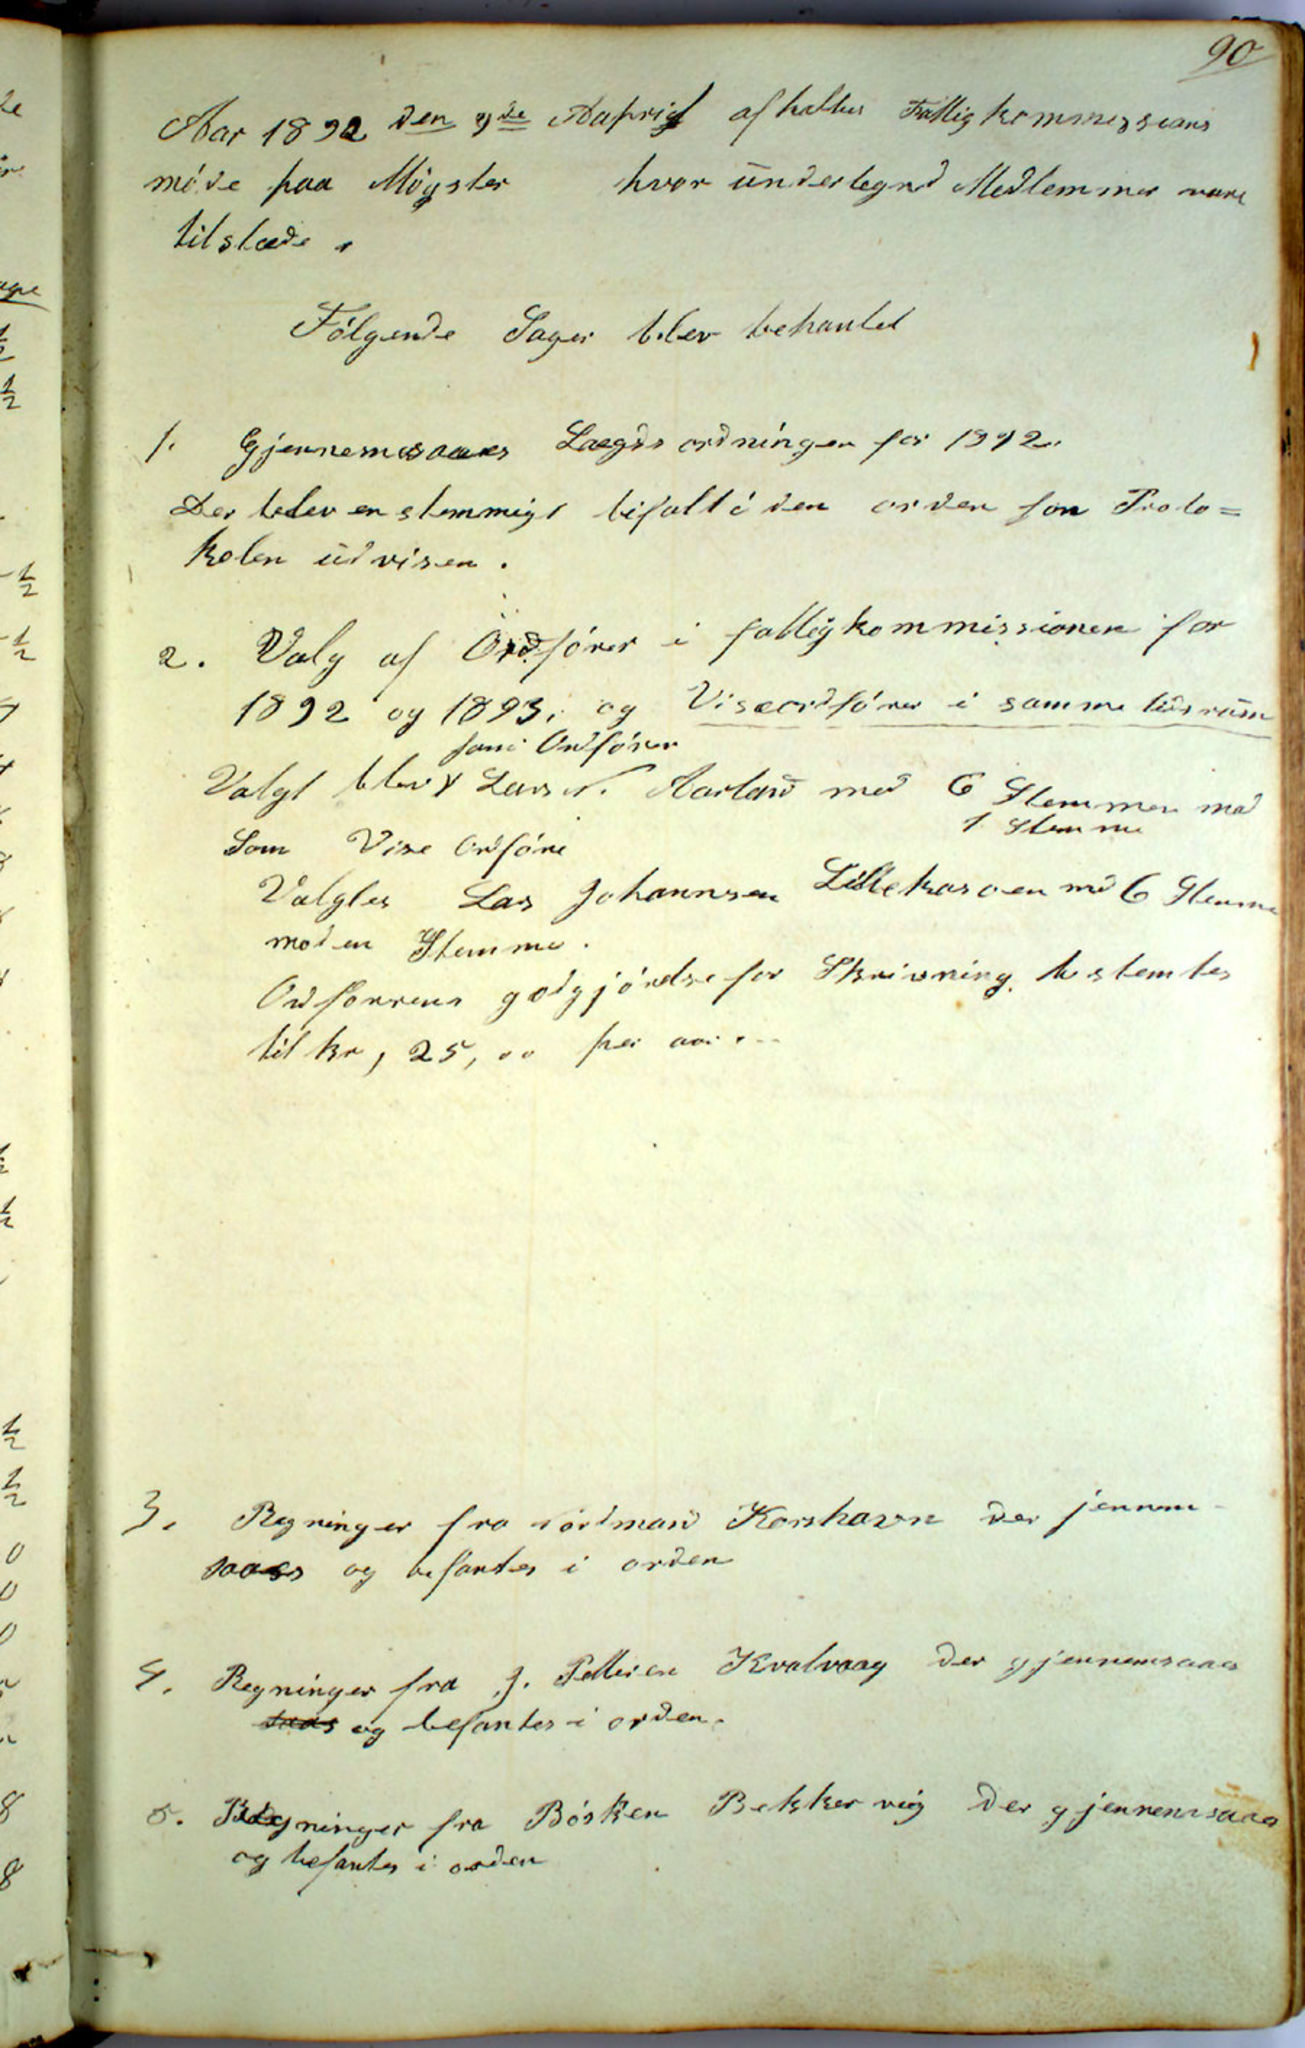 90
Aar 1892 den 9de Aaprial afholtes Fattigkommissians
möde paa Møgster hvor ūndertegnd Medlemmer vare
tilstæde.
Følgende Sager blev behantlet
1. Gjennemsaaes Lægdsordningen for 1892.
Der blev enstemmigt bifalt i den orden som Proto=
kolen ūdvisen.
2. Valg af Ordfører i fattigkommissionen for
1892 og 1893, og Viseordfører i samme tidsrūm
som Ordfører
Valgt blev Lars N. Aarland med 6 Stemmer mod
1 Stemme
Som Vise Ordføre
Valgtes Lars Johannsen Lillekarsøen md 6 Stemme
mod en Stemme.
Ordførerens godgjørelse for Skrivning bestemtes
til kr, 25,00 per aar.
3. Regninger fra Nordmand Korshavn der jennem-
saaes og befantes i orden
4. Regninger fra J. Pettersen Kvalvaag der gjennemsaaes
saas og befantes i orden.
5. Regninger fra Børken Bekkervig der gjennemsaaes
og befantes i orden